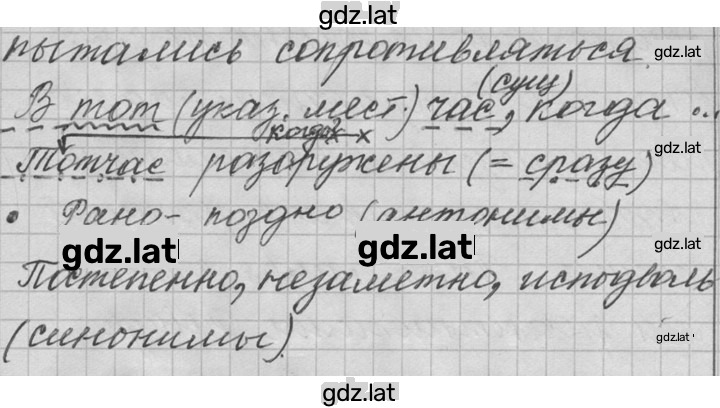 gdz.lat
пытались сопротивляться. gdz.lat
(сущ)
В тот (указ. мест.) час, когда ...
когда?
gdz.lat
Тотчас разоружены (= сразу)
• Рано - поздно (антонимы)
gdz.lat gdz.lat gdz.lat
Постепенно, незаметно, исподволь
(синонимы). gdz.lat
gdz.lat